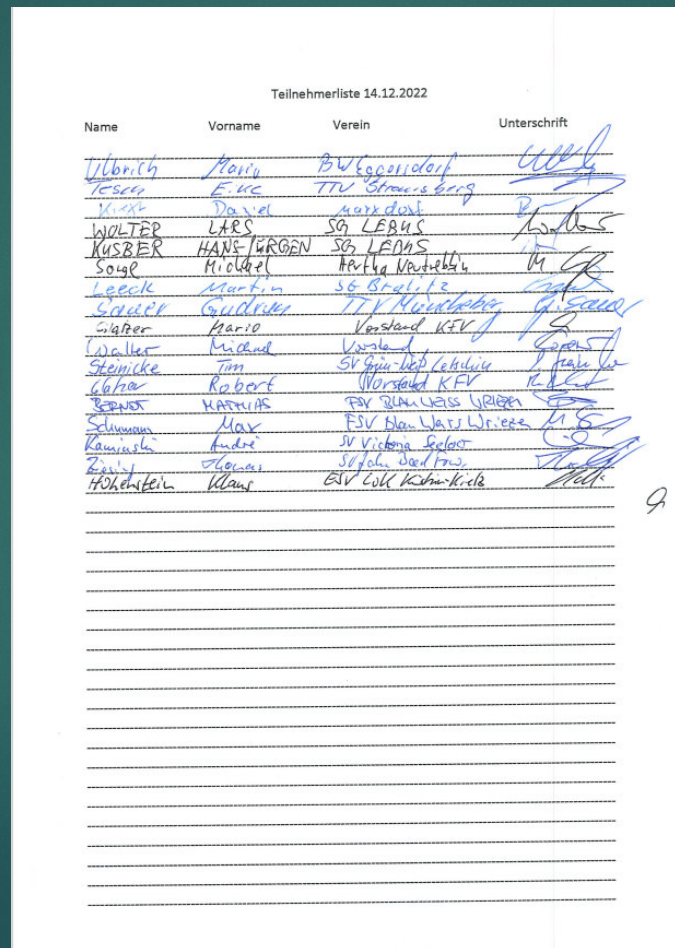 Teilnehmerliste 14.12.2022
Name Vorname Verein Unterschrift
Ulbrich Mario BW Eggersdorf
Tesch TTV Strausberg
Daniel Marxdorf
WOLTER LARS SG LEBUS
KUSBER HANS-JÜRGEN SG LEBUS
Sorge Michael Hertha Neutrebbin
Leeck Martin SG Bralitz
Sauer Gudrun TTV Müncheberg G. Sauer
Glatzer Mario Vorstand KFV
Walter Michael Vorstand
Steinicke Tim SV Grün-Weiß Letschin
Robert Vorstand KFV
BERNDT MATHIAS FSV BLAU WEISS WRIEZEN
Schumann Max FSV Blau Weiss Wriezen
Kaminski André SV Victoria Seelow
Thomas SV
Hohenstein Klaus ESV Lok Küstrin-Kietz